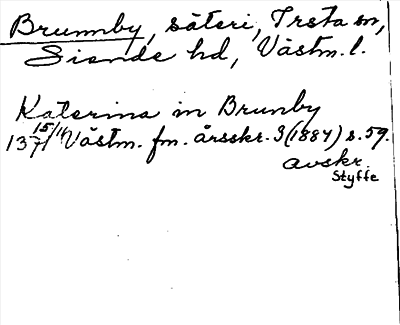 Brunnby, säteri, Irsta sn,
Siende hd, Västm. l.
Katerina in Brunby
15/11 1371 Västm. fm. årsskr. 3 (1884) s. 59.
avskr.
Styffe